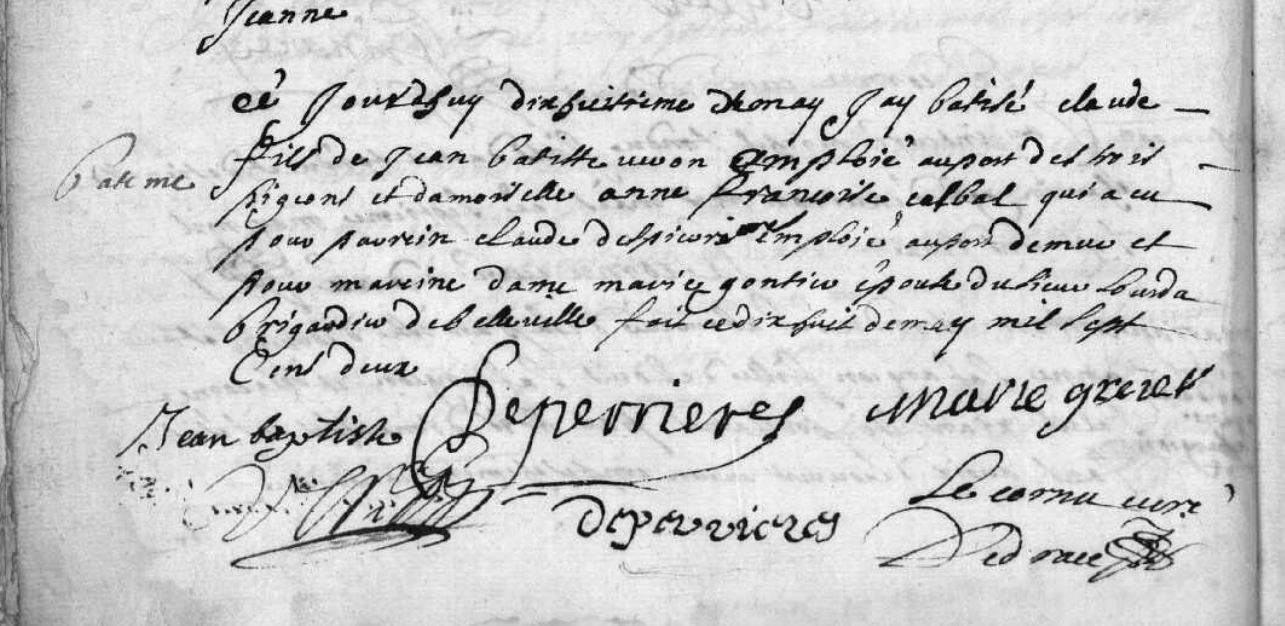 Jeanne
cé Jourdhuy dixhuitieme de may Jay batisé claude
bateme
fils de Jean batiste uvon emploié au port des trois
pigeons et damoiselle anne francoise calbal qui a eu
pour parein claude despierre emploié au port de mue et
pour mareine dame marie gontier épouse du sieur bourda
brigardier de belleville fait ce dixhuit de may mil sept
Cens deux
Jean baptiste Deperrieres marie greret
deperrieres
Le cornu curé
De drace